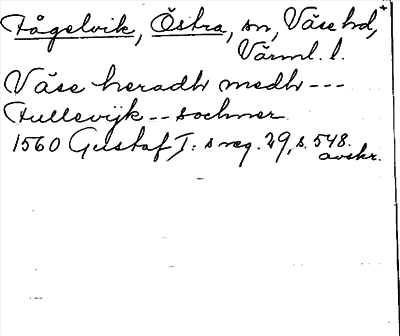 Fågelvik, Östra, sn, Väse hd,
Värml. l.
Väse heradh medh ---
Fullevijk -- sochner
1560 Gustaf I:s reg. 29, s. 548.
avskr.